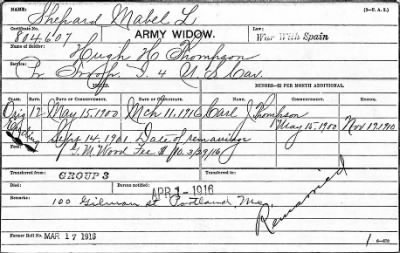 NAME: Shepard Mabel L
(3—U. S. A.)
Certificate No.
804607
ARMY WIDOW.
Law:
War With Spain
Name of Soldier:
Hugh H Thompson
Service:
Pr Troop I 4 U S Cav.
ISSUES.
MINORS—$2 PER MONTH ADDITIONAL.
CLASS. RATE. DATE OF COMMENCEMENT. DATE OF TERMINATION. NAME. DATE OF COMMENCEMENT. DATE OF TERMINATION.
Orig 12 May 15, 1900 Mch 11, 1916 Carl J Thompson May 15, 1900 Nov 12, 1910
Ending Sept 14, 1901 Date of remarriage
G. M. Wood Fee $ No. 3/29/16
Transferred from
GROUP 3
Transferred to
Died
Bureau notified:
APR 1-1916
Remarks:
100 Gilman st Portland, Me.
Remarried
Former Roll No.
MAR 17 1913
1
6—570